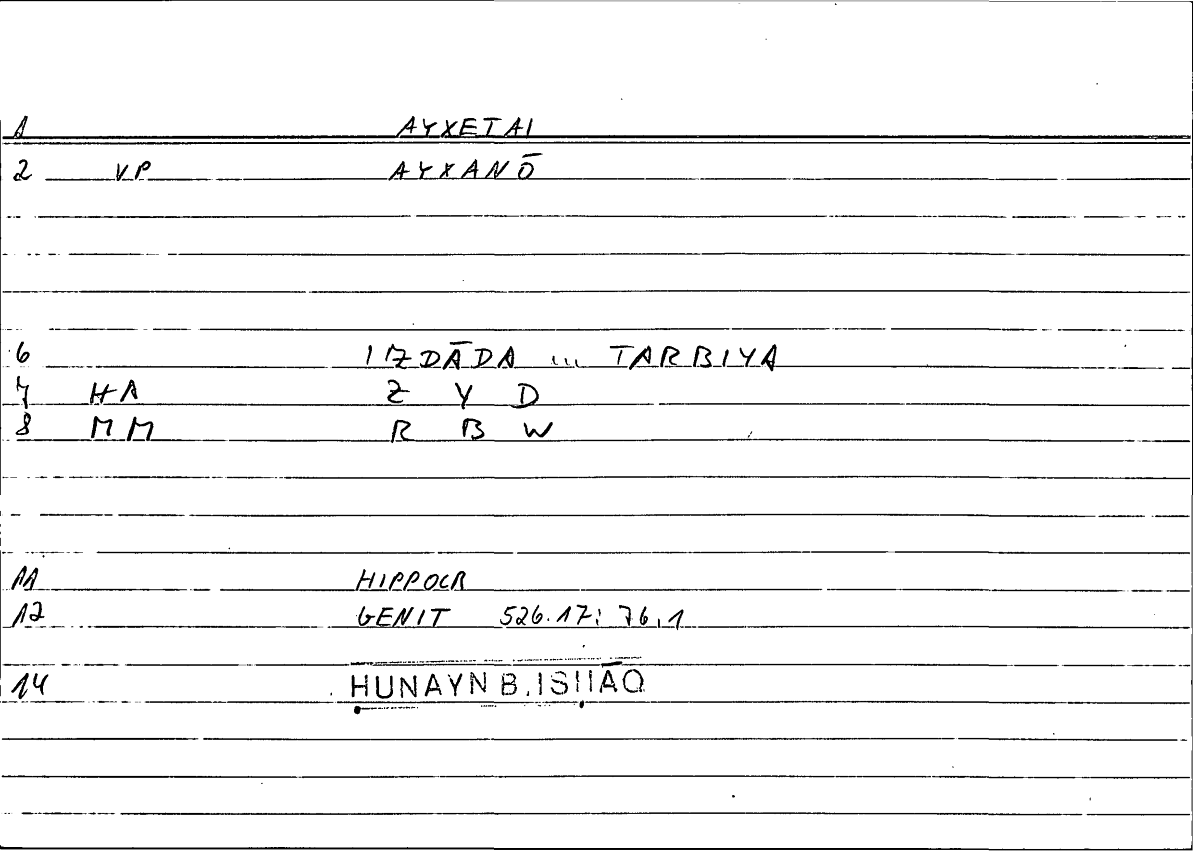 1 AYXETAI
2 VP AYXANŌ
6 IZDĀDA ... TARBIYA
7 HA Z Y D
8 MM R B W
11 HIPPOCR
12 GENIT 526.17; 76,1
14 ḤUNAYN B. ISḤĀQ